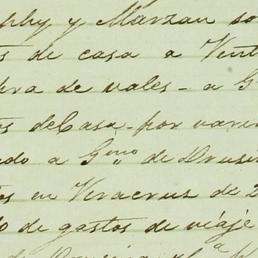 phy y Marzan so
s de casa a Vent
pra de vales - a G
s de Casa - por vari
do a Gmo de Drusi
os en Veracruz de 2
o de gastos de viáje